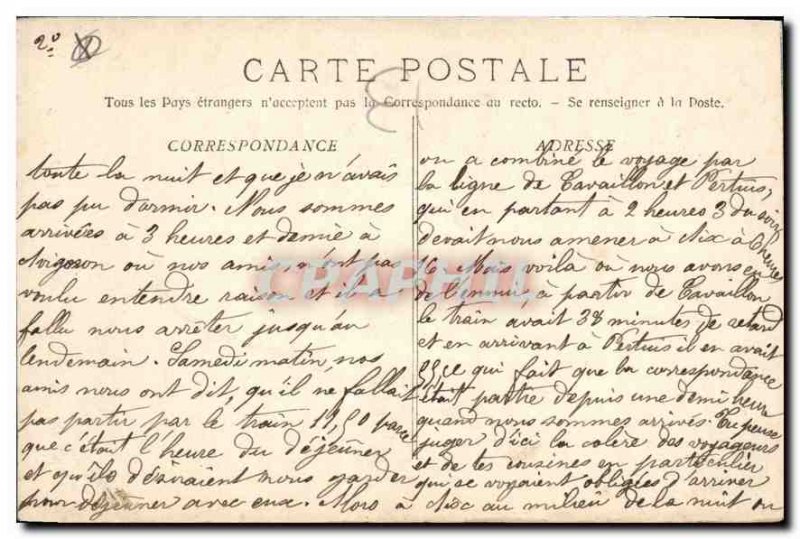 2º
CARTE POSTALE
Tous les Pays étrangers n'acceptent pas la Correspondance au recto. - Se renseigner à la Poste.
CORRESPONDANCE
toute la nuit et que je n'avais
pas pu dormir. Nous sommes
arrivées à 3 heures et demie à
Avignon où nos amis n'ont pas
voulu entendre raison et il a
fallu nous arrêter jusqu'au
lendemain. Samedi matin, nos
amis nous ont dit, qu'il ne fallait
pas partir par le train 11,50 parce
que c'était l'heure du déjeuner
et qu'ils désiraient nous garder
pour déjeuner avec eux. Alors
ADRESSE
on a combiné le voyage par
la ligne de Cavaillon et Pertuis,
qui en partant à 2 heures 3 du soir
devait nous amener à Aix à 6 heures
16. Mais voilà où nous avons eu
de l'ennui, à partir de Cavaillon
le train avait 38 minutes de retard
et en arrivant à Pertuis il en avait
55 ce qui fait que la correspondance
était partie depuis une demi heure
quand nous sommes arrivés. Tu peux
juger d'ici la colère des voyageurs
et de tes cousines en particulier
qui se voyaient obligées d'arriver
à Aix au milieu de la nuit ou
CPAPHIL